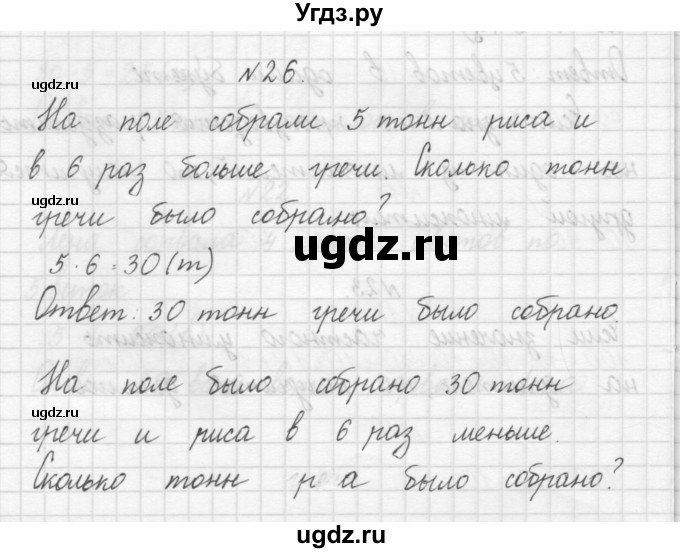 Угдз.ру
ugdz.ru
№26.
На поле собрали 5 тонн риса и
в 6 раз больше гречи. Сколько тонн
гречи было собрано?
ugdz.ru
ugdz.ru
5·6=30(т)
Ответ: 30 тонн гречи было собрано.
На поле было собрано 30 тонн
ugdz.ru
гречи и риса в 6 раз меньше.
Сколько тонн р а было собрано?
ugdz.ru
ugdz.ru